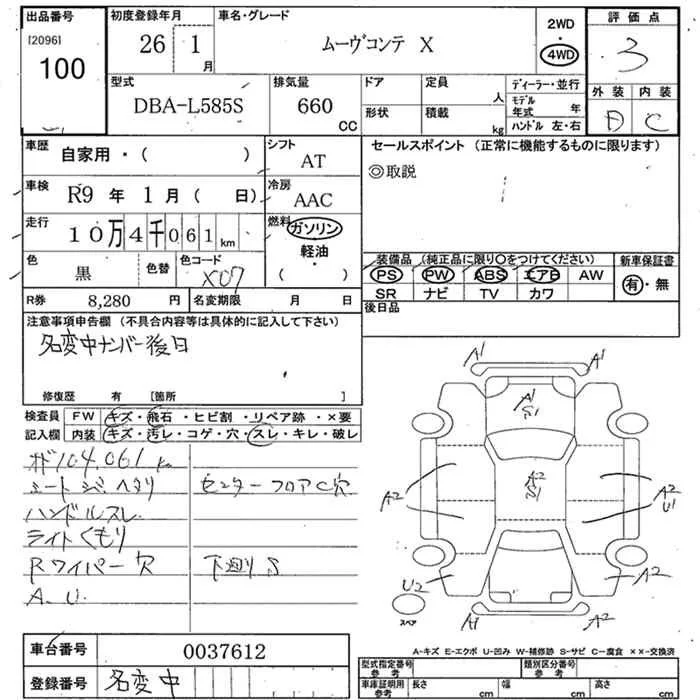 出品番号
[2096]
100
初度登録年月
26 1月
車名・グレード
ムーヴコンテ X
2WD
・
4WD
評価点
3
型式
DBA-L585S
排気量
660 CC
ドア
形状
定員 人
積載 kg
ディーラー・並行
モデル年式 年
ハンドル 左・右
外装 内装
D C
車歴
自家用・( )
シフト
AT
車検
R9 年 1 月 ( 日)
冷房
AAC
走行
10万4千061km
燃料
ガソリン
・
軽油
( )
色
黒
色替
色コード
X07
R券 8,280 円
名変期限 月 日
セールスポイント (正常に機能するものに限ります)
◎取説
装備品 (純正品に限り〇をつけてください)
PS PW ABS エアB AW
SR ナビ TV カワ
新車保証書
有・無
後日品
注意事項申告欄 (不具合内容等は具体的に記入して下さい)
名変中ナンバー後日
修復歴 有 [箇所 ]
検査員記入欄
FW キズ・飛石・ヒビ割・リペア跡・×要
内装 キズ・汚レ・コゲ・穴・スレ・キレ・破レ
104,061 k
ハンドルスレ
ライトくもり
Rワイパー欠
A.U.
センターフロアC穴
下廻りS
A1 A1
A1
S1
A2
S1
A2
A2
A2
U1
U2
A2
A1 A1
スペア
A-キズ E-エクボ U-凹み W-補修跡 S-サビ C-腐食 ××-交換済
車台番号 0037612
登録番号 名変中
型式指定番号 参考
類別区分番号 参考
車庫証明用 参考
長さ cm 幅 cm 高さ cm